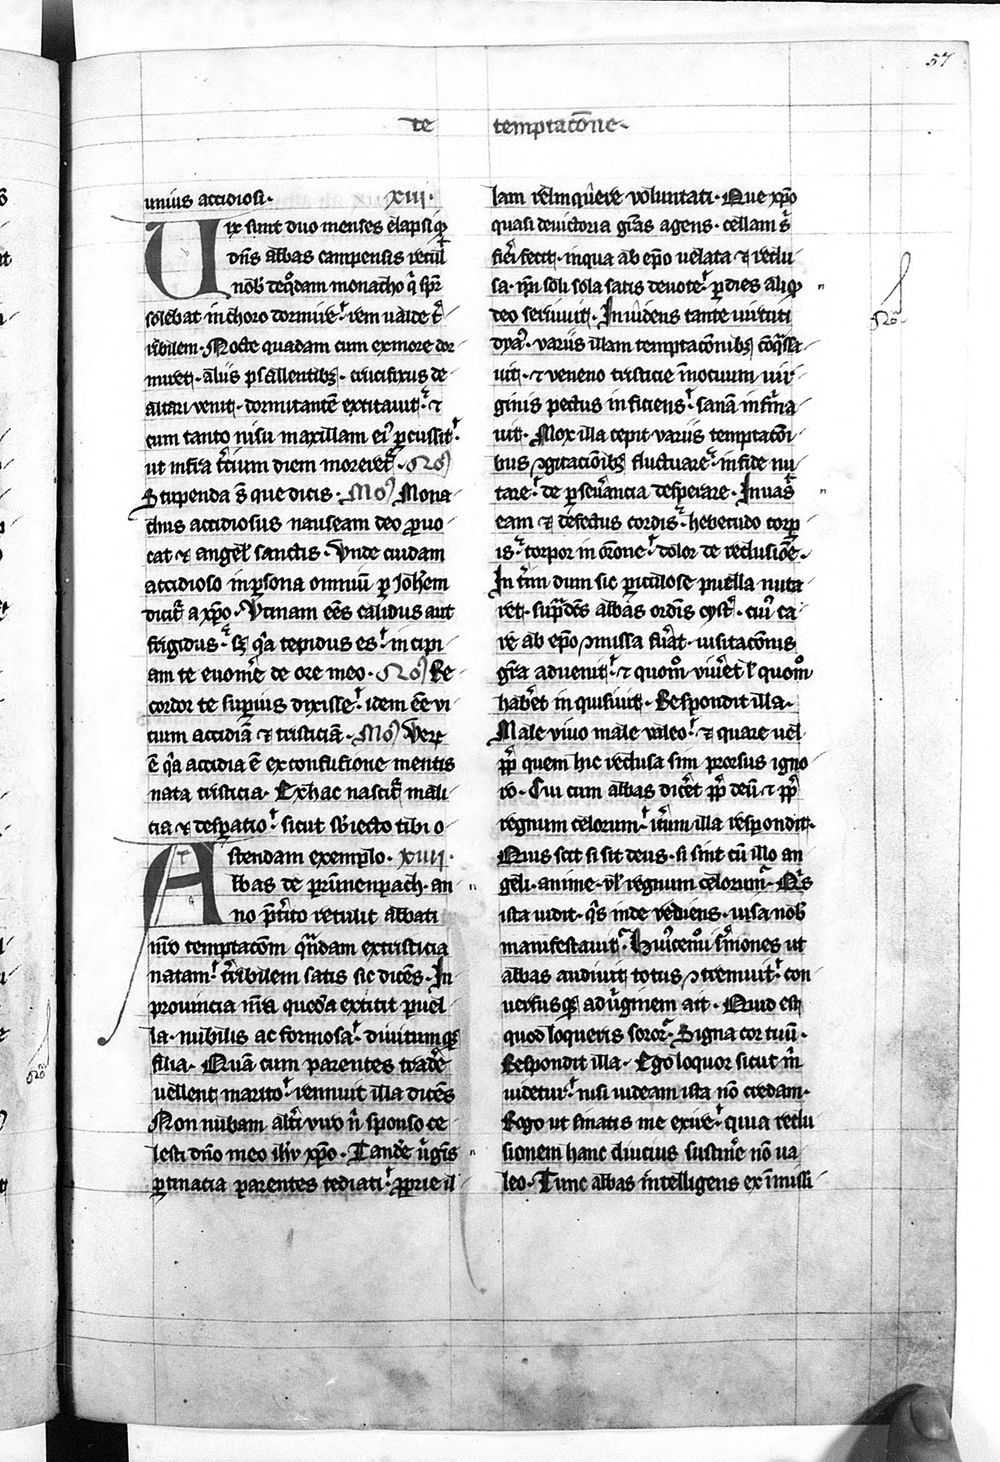 57
de temptac̄one.
unius accidiosi. xiii.
Uix sunt duo menses elapsi q̄
dn̄s abbas campensis retul̄
nob̄ de q̊dam monacho q̇ sp̄
solebat in choro dormire. rem ualde t̄
ribilem. Nocte quadam cum ex more dor
miret. aliis psallentibꝫ. crucifixus de
altari venit. dormitantē extitauit. ⁊
cum tanto nisu maxillam ei᷒ ꝑcussit.
ut infra t̄cium diem moreret᷑. No᷒
Stupenda s̄t que dicis. Mo᷒ Mona
chus accidiosus nauseam deo ꝓuo
cat ⁊ angel̄ sanctis. Vnde cuidam
accidioso in ꝑsona omniū ꝑ Joh̄em
dicit᷑ a xp̄o. Vtinam eēs calidus aut
frigidus. sꝫ q̇a tepidus es. incipi
am te euom̄e de ore meo. No᷒ Re
cordor te suꝑius dixisse. idem eē vi
cium accidiā ⁊ tristiciā. Mo᷒ Vere
ē q̇a accidia ē ex confusione mentis
nata tristicia. Ex hac nascit᷑ mali
cia ⁊ desꝑatio. sicut sb̄iecto tibi o
stendam exemplo. xiiii.
Abbas de prūmenpach. an
no p̄t̄ito retulit abbati
nr̄o temptac̄om q̄ndam ex tristicia
natam. t̄ribilem satis sic dicēs. In
prouincia nr̄a queda extitit puel
la. nubilis ac formosa. diuitumqꝫ
filia. Quā cum parentes trad̄e
vellent marito. rennuit illa dicēs
Non nubam alt̄i viro n̄ sponso ce
lesti dn̄o meo ih̄u xp̄o. Tand̄e ūgīs
ꝑtinacia parentes tediati. ꝓprie il
lam relinq̄uere voluntati. Que xp̄o
quasi deuictoria grās agens. cellam s̄
fieri fecit. in qua ab ep̄o uelata ⁊ reclu
sa. ip̄i soli sola satis deuote. ꝑ dies aliq̄
deo seruiuit. Inuidens tante uirtuti
dya᷒. variis illam temptac̄onibꝫ cōq̄ssa
uit. ⁊ veneno tristicie īnocuum uir
ginis pectus inficiens. sanā infirma
uit. Mox illa cepit variis temptac̄oi
bus ꝯgitac̄onibꝫ fluctuare. in fide nu
tare. de ꝑseu̾ancia desperare. Inuas̄
eam ⁊ defectus cordis. hebetudo corꝑ
is. torpor in or̄one. dolor de reclusiōe.
In t̄im dum sic ꝑiculose puella nuta
ret. supradēs abbas ordīs cyst̄. cui᷒ ca
re ab ep̄o ꝯmissa fu̾at. uisitac̄onis
gr̄a aduenit. ⁊ quom̊ viu̾et l̄ quom̊
hab̄et inquisiuit. Respondit illa.
Male viuo male valeo. ⁊ quare uel
ꝓpt̄ quem hic reclusa sim prorsus igno
ro. Cui cum abbas dic̄et ꝓpt̄ deū ⁊ ꝓpt̄
regnum celorum. it̄um illa respondit.
Quis scit si sit deus. si sint cū illo an
geli. anime. vl̄ regnum celorum. Q̇s
ista uidit. q̇s inde rediens. uisa nob̄
manifestauit. Hui᷒cem̊i s̄mones ut
abbas audiuit totus ꝯtremuit. con
uersusqꝫ ad ūginem ait. Quid est
quod loqueris soror. Signa cor tuū.
Respondit illa. Ego loquor sicut m̄
uidetur. nisi uideam ista nō credam.
Rogo ut sinatis me exire. quia reclu
sionem hanc diucius sustin̄e nō ua
leo. Tunc abbas intelligens ex īmissi